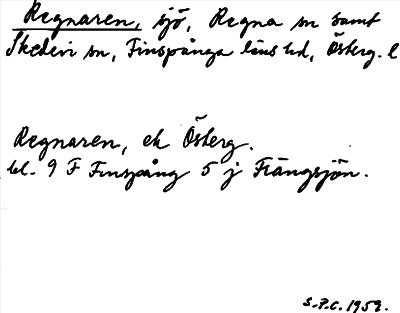 Regnaren, sjö, Regna sn samt
Skedevi sn, Finspånga läns hd, Österg. l
Regnaren, ek Österg.
bl. 9 F Finspång 5 j Trängsjön.
S.P.C. 1959.